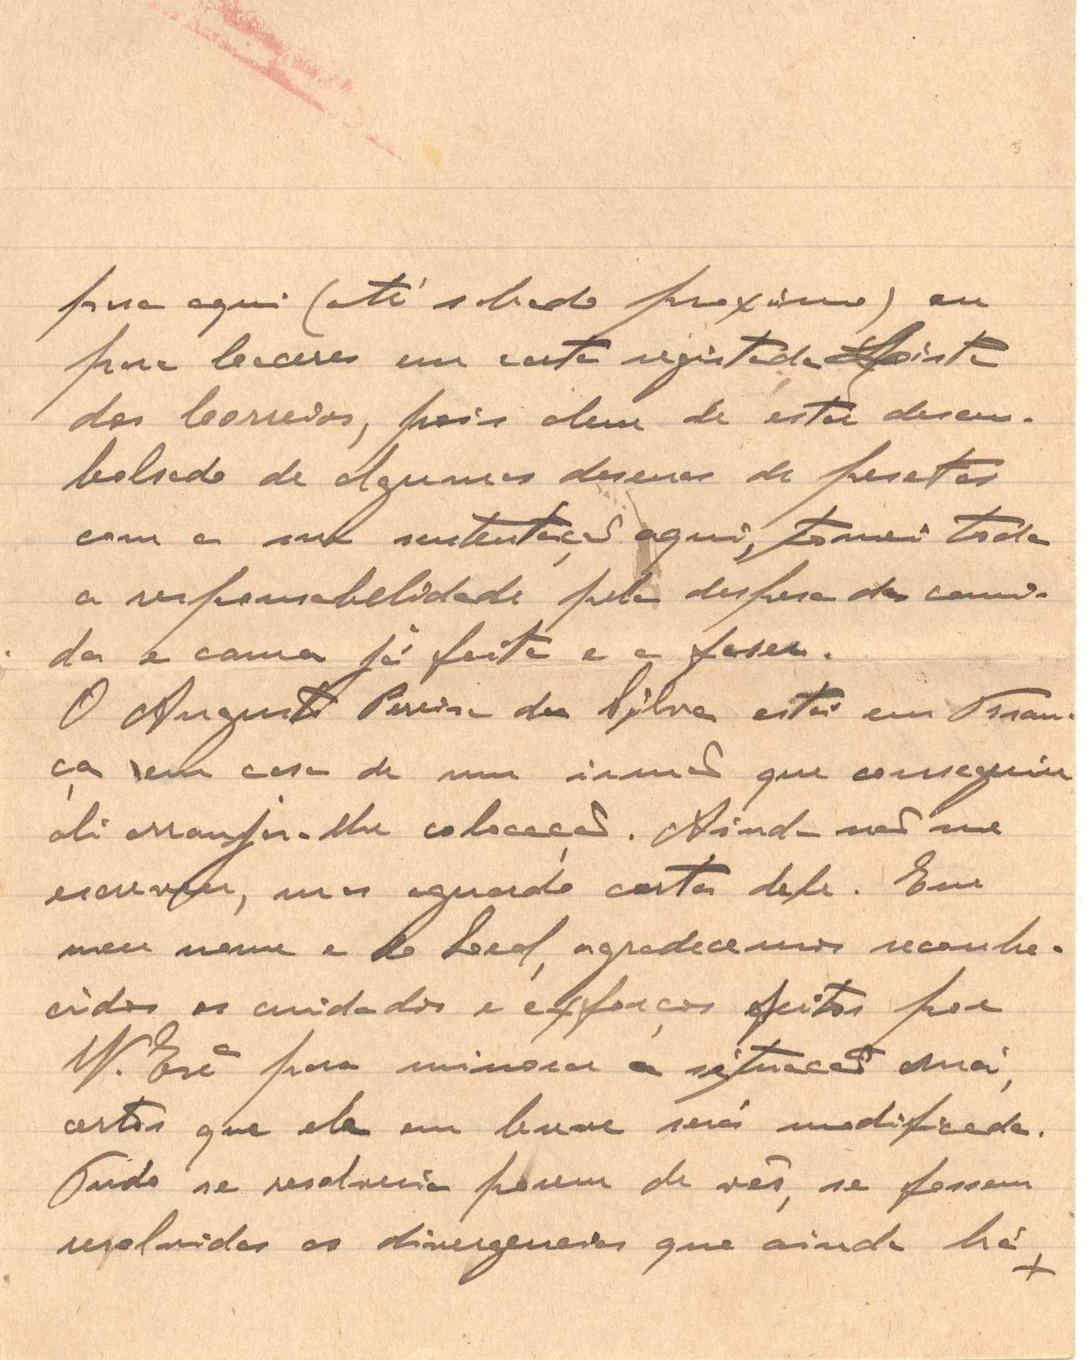 para aqui (até sabado proximo) ou
para Caceres em carta registada Posta
dos Correios, pois alem de estar desem-
bolsado de algumas desenas de pesetas
com a sua sustentação aqui, tomei toda
a responsabelidade pela despesa da comi-
da e cama já feita e a faser.
O Augusto Pereira da Silva está em Fran-
ça em casa de um irmão que conseguiu
ali arranjar-lhe colocação. Ainda não me
escreveu, mas aguardo carta dele. Em
meu nome e do Leal, agradecemos reconhe-
cidos os cuidados e exforços feitos por
V. Exª para minorar a situação má,
certos que ela em breve será modificada.
Tudo se resolveria porem de vês, se fossem
resolvidas as divergencias que ainda há,
+